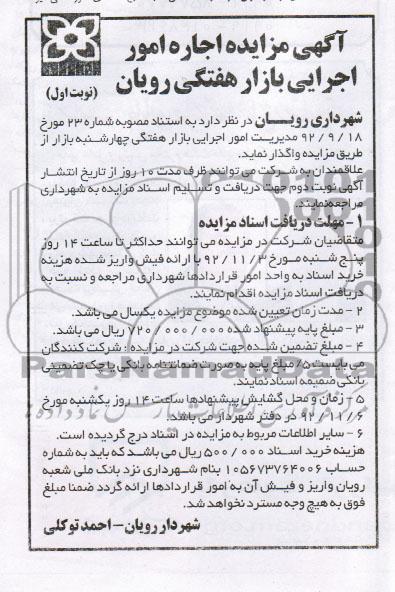 آگهی مزایده اجاره امور
اجرایی بازار هفتگی رویان
(نوبت اول)
شهرداری رویـــان در نظر دارد به استناد مصوبه شماره ۲۳ مورخ
۹۲/۹/۱۸ مدیریت امور اجرایی بازار هفتگی چهارشنبه بازار از
طریق مزایده واگذار نماید.
علاقمندان به شرکت می توانند ظرف مدت ۱۰ روز از تاریخ انتشار
آگهی نوبت دوم جهت دریافت و تسلیم اسناد مزایده به شهرداری
مراجعه نمایند.
۱- مهلت دریافت اسناد مزایده
متقاضیان شرکت در مزایده می توانند حداکثر تا ساعت ۱۴ روز
پنج شنبه مورخ ۹۲/۱۱/۳ با ارائه فیش واریز شده هزینه
خرید اسناد به واحد امور قراردادها شهرداری مراجعه و نسبت به
دریافت اسناد مزایده اقدام نمایند.
۲- مدت زمان تعیین شده موضوع مزایده یکسال می باشد.
۳- مبلغ پایه پیشنهاد شده ۷۲۰/۰۰۰/۰۰۰ ریال می باشد.
۴- مبلغ تضمین شده جهت شرکت در مزایده: شرکت کنندگان
می بایست ۵٪ مبلغ پایه به صورت ضمانتنامه بانکی یا چک تضمینی
بانکی ضمیمه اسناد نمایند.
۵- زمان و محل گشایش پیشنهادها ساعت ۱۴ روز یکشنبه مورخ
۹۲/۱۱/۶ در دفتر شهردار می باشد.
۶- سایر اطلاعات مربوط به مزایده در اسناد درج گردیده است.
هزینه خرید اسناد ۵۰۰/۰۰۰ ریال می باشد که باید به شماره
حساب ۱۰۵۶۷۳۷۶۴۰۰۶ بنام شهرداری نزد بانک ملی شعبه
رویان واریز و فیش آن به امور قراردادها ارائه گردد ضمنا مبلغ
فوق به هیچ وجه مسترد نخواهد شد.
شهردار رویان - احمد توکلی
ParsNamadData